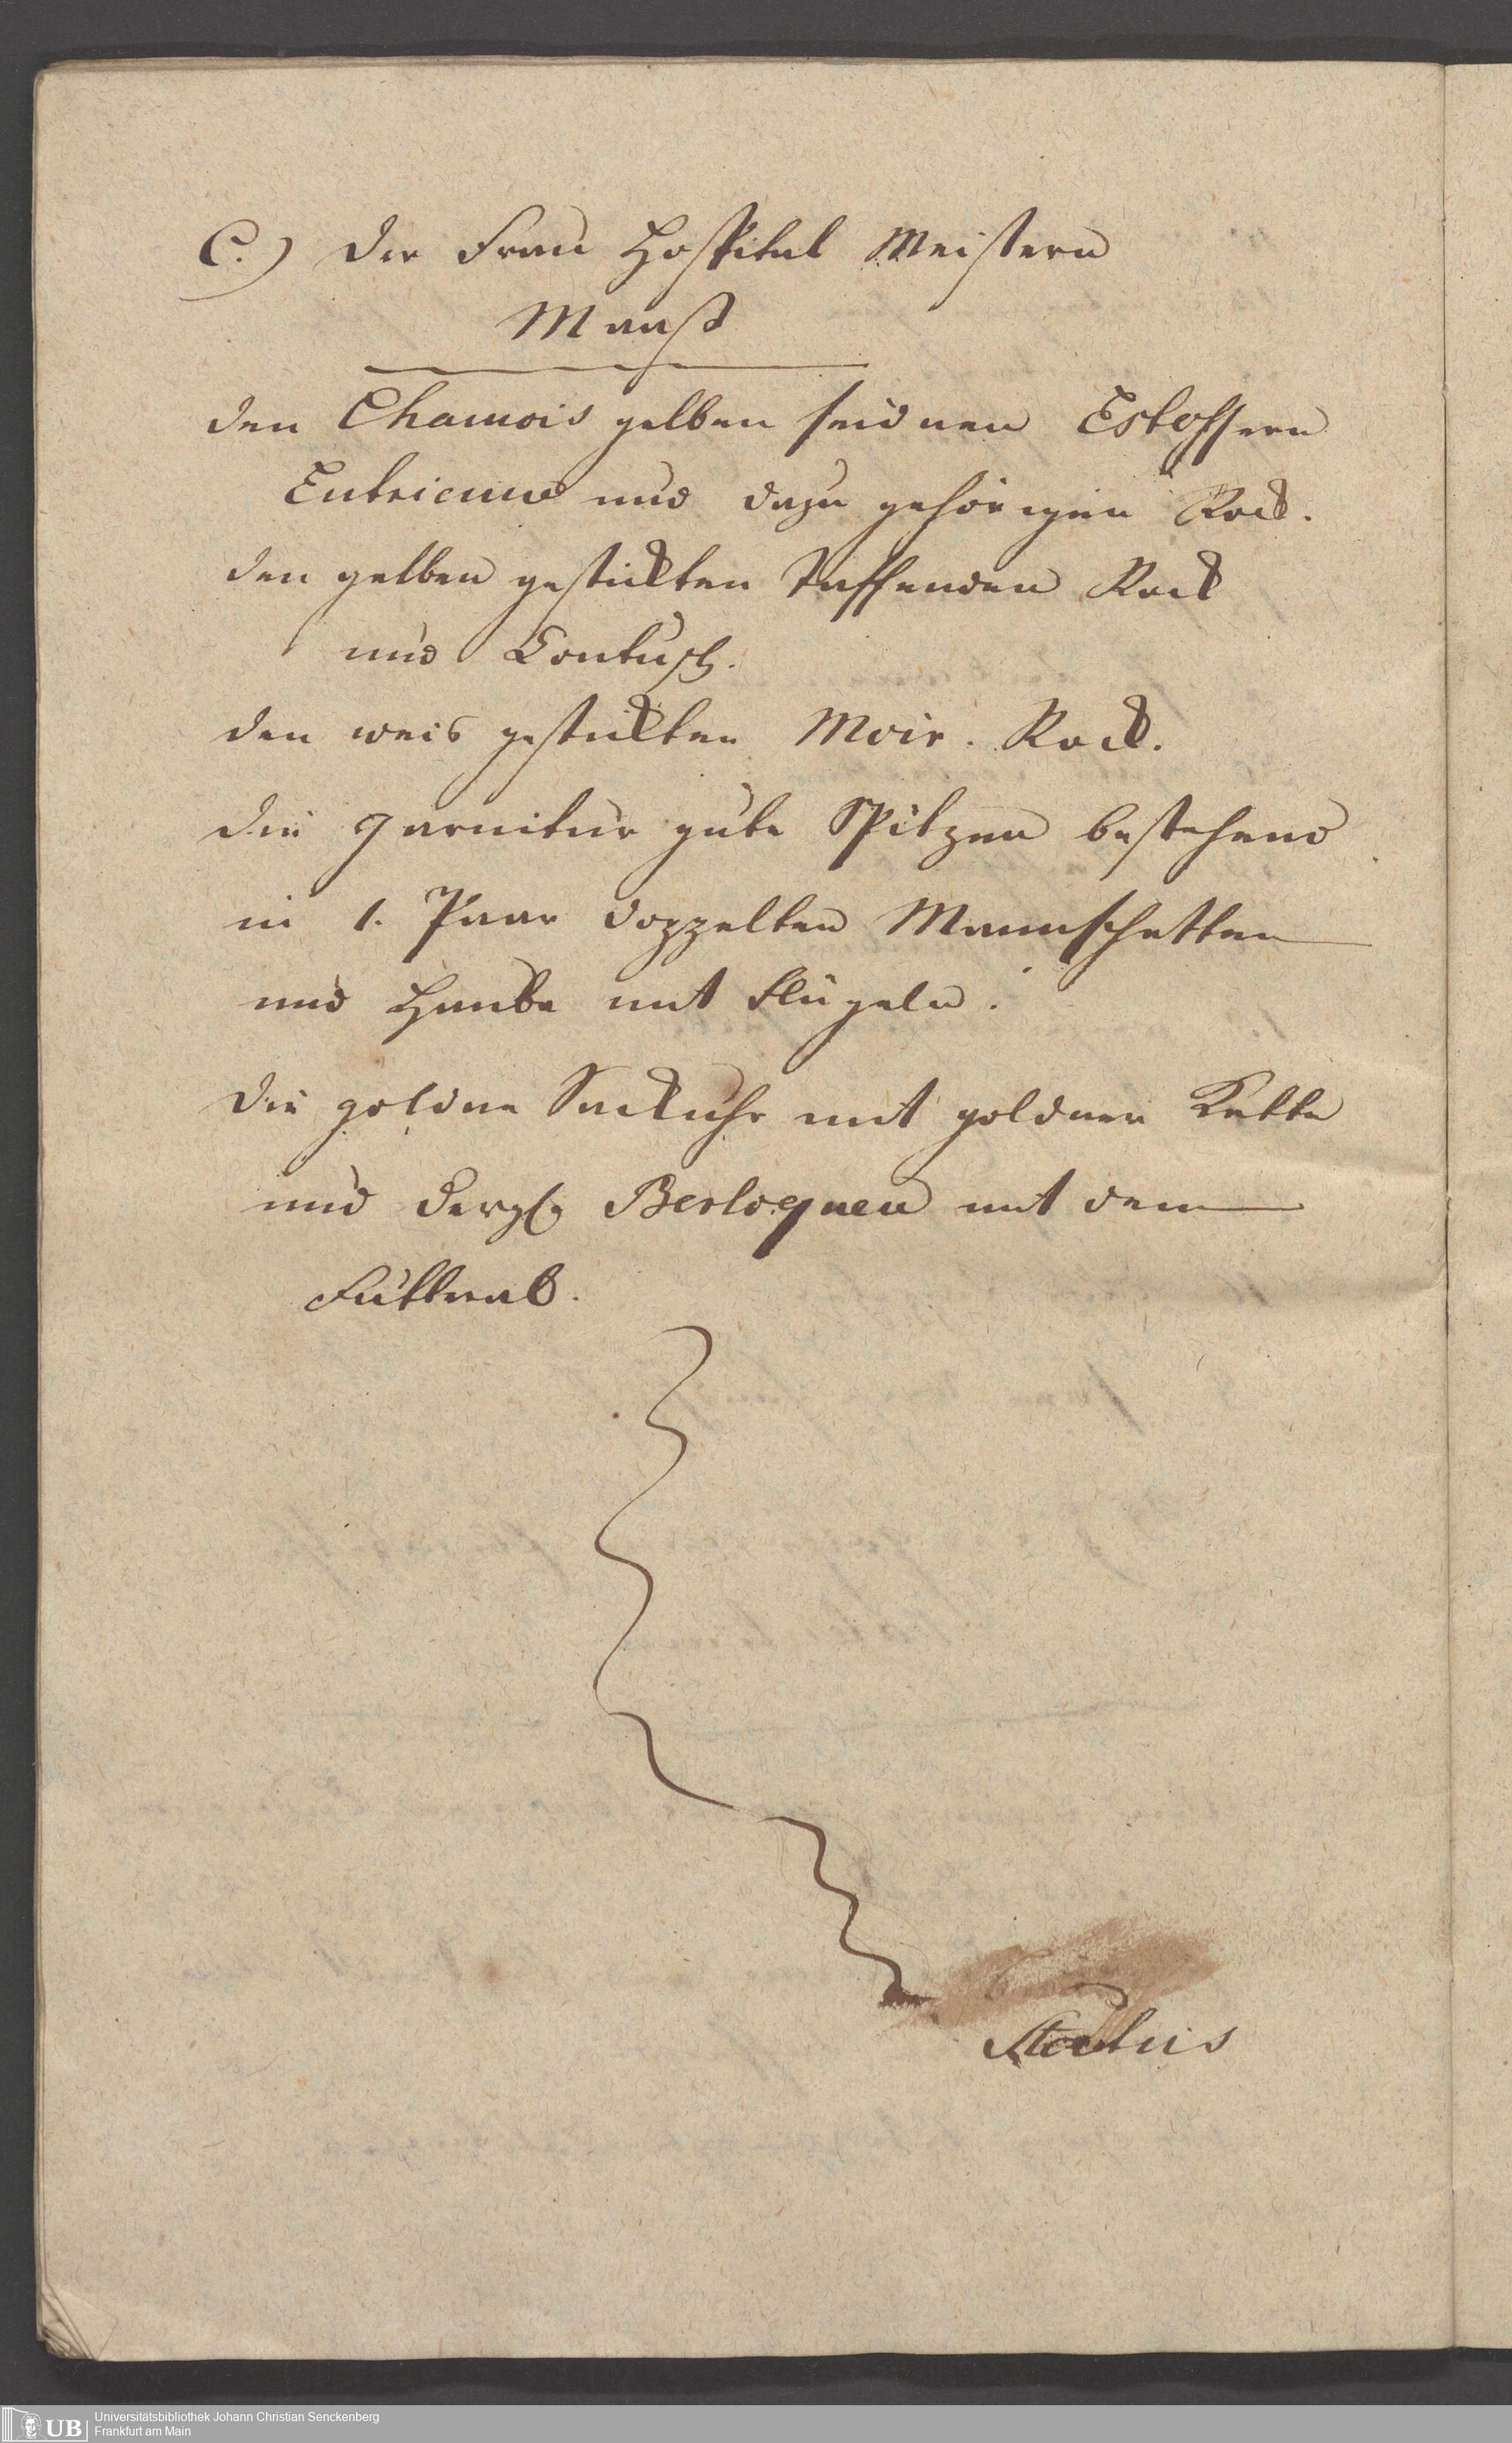 C.) Der Frau Hospital Meistern
Maass
den Chamois gelben seidnen Estoffern
und dazu gehörigen Rock.
den gelben gestickten Taffenden Rock
und Contusch.
den weis gestickten Moir. Rock.
die Garnitur gute Spitzen bestehend
in 1. Paar doppelten Mannschetten
und Haube mit Flügeln.
die goldne Sackuhr mit goldner Kette
und dergl. Berloquen mit dem
Futteral.
Universitätsbibliothek Johann Christian Senckenberg
Frankfurt am Main
UB